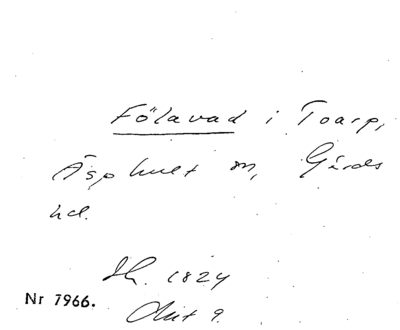 Fölavad i Toarp,
Äsphult sn, Gärds
hd.
Sk. 1824
Nr 7966.
Akt 9.